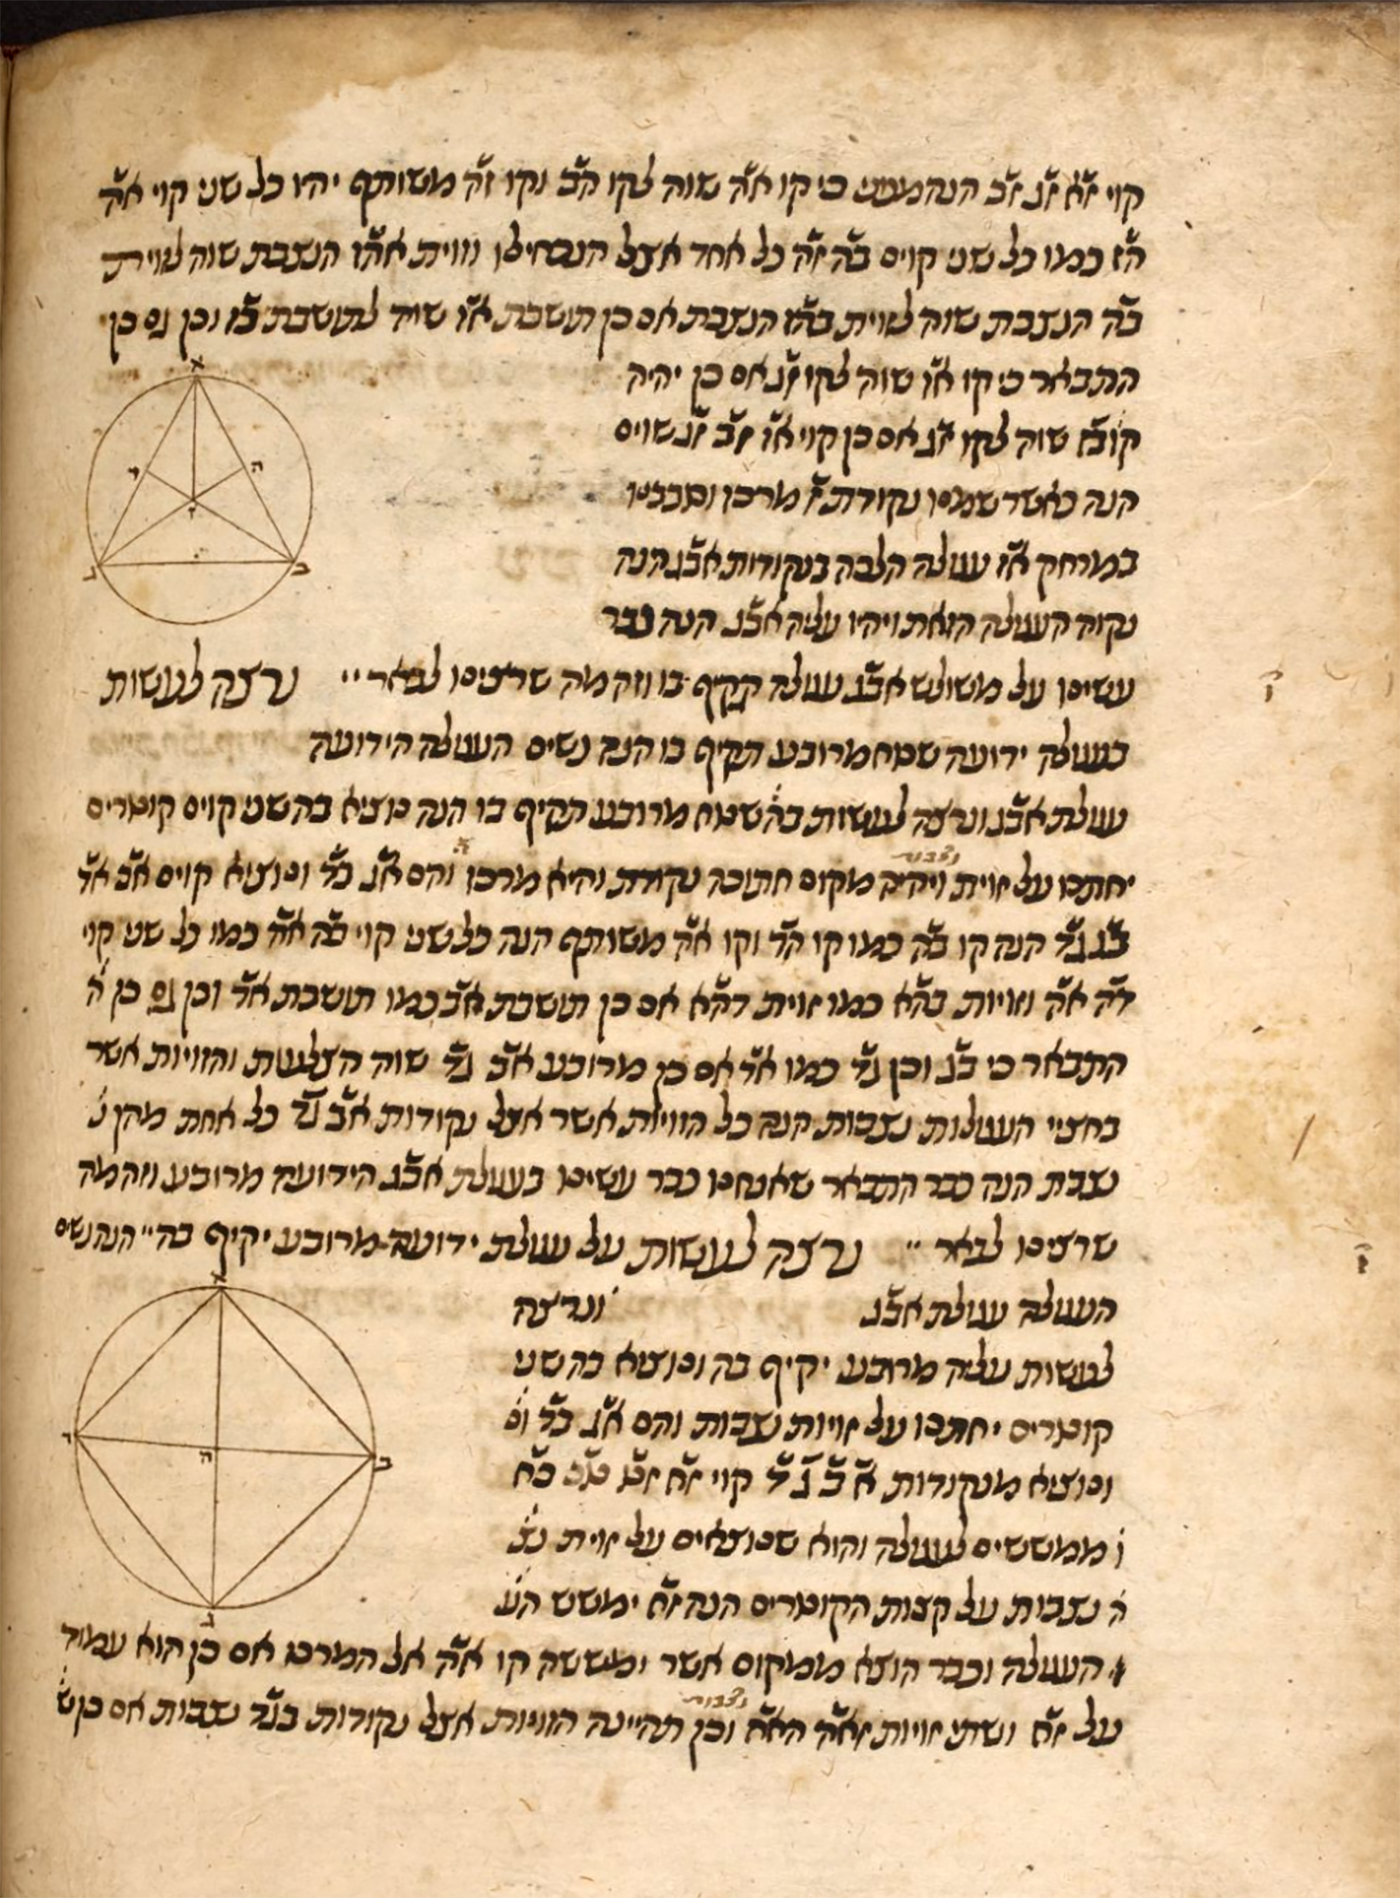 קוי ז̈א ז̈ג ז̈ב הנה מפני כי קו א̈ה שוה לקו ה̈ב וקו ז̈ה משותף יהיו כל שני קוי א̈ה
ה̈ז כמו כל שני קוים ב̈ה ז̈ה כל אחד אצל וזוית אה̈ז הנצבת שוה לזוית
ב̈ה הנצבת שוה לזוית בה̈ז הנצבת אם כן תושבת א̈ז שוה לתושבת ב̈ז וכן גם כן
התבאר כי קו א̈ז שוה לקו ז̈ג אם כן יהיה
קו ב̈ז שוה לקו ז̈ג אם כן קוי א̈ז ז̈ב ז̈ג שוים
הנה כאשר שמנו נקודת ז̈ מרכז וסבבנו
במרחק א̈ז עגולה הלכה בנקודות אב̈ג הנה
נקוה העגולה הזאת ויהיו עליה אב̈ג הנה כבר
עשינו על משולש אב̈ג עגולה תקיף בו וזה מה שרצינו לבאר נרצה לעשות
בעגולה ידועה שטח מרובע תקיף בו הנה נשים העגולה הידועה
עגולת אב̈ג ונרצה לעשות בה שטח מרובע תקיף בו הנה נוציא בה שני קוים קוטרים
יחתכו על זוית נצבות ויהיה מקום חתוכה נקודת והיא מרכז ה והם א̈ג ב̈ד ונוציא קוים א̈ב א̈ד
ב̈ג ג̈ד הנה קו ב̈ה כמו קו ה̈ד וקו א̈ה משותף הנה כל שני קוי ב̈ה א̈ה כמו כל שני קוי
ד̈ה א̈ה וזויות בה̈א כמו זוית דה̈א אם כן תושבת א̈ב כמו תושבת א̈ד וכן גם כן ה
התבאר כי ב̈ג וכן ג̈ד כמו א̈ד אם כן מרובע א̈ב ג̈ד שוה הצלעות והזויות אשר
בחציי העגולות נצבות הנה כל הזוית אשר אצל נקודות א̈ב ג̈ד כל אחת מהן נ
נצבת הנה כבר התבאר שאנחנו כבר עשינו בעגולת אב̈ג הידועה מרובע וזה מה
שרצינו לבאר נרצה לעשות על עגולת ידועה מרובע יקיף בה הנה נשים
העגולה עגולת אב̈ג ונרצה
לעשות עליה מרובע יקיף בה ונוציא בה שני
קוטרים יחתכו על זויות נצבות והם א̈ג ב̈ד ונ
ונוציא מנקודות א̈ ב̈ ג̈ ד̈ קוי
ממששים לעגולה והוא שנוציאים על זוית נצ
נצבות על קצות הקוטרים הנה ז̈א ימשש הע
העגולה וכבר הוצא ממקום אשר ימששה קו א̈ה אל המרכז אם כן הוא עמוד
על ז̈א ושתי זויות זא̈ה נצבות וכן תהיינה הזויות אצל נקודות בג̈ד נצבות אם כן ש
א
ה
ו
ז
ד
ב
ג
א
ב
ג
ד
ה